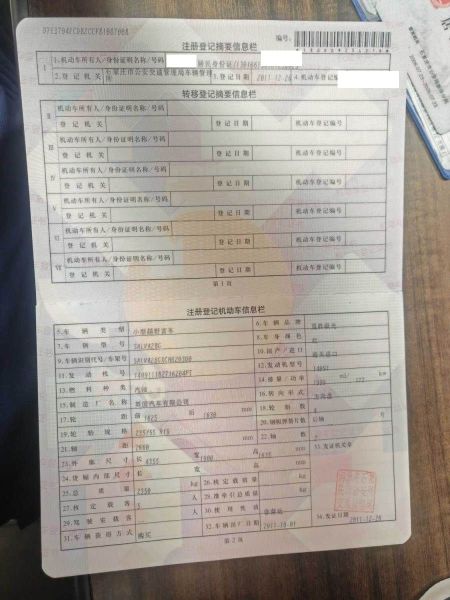 注册登记摘要信息栏
编号：
1.机动车所有人/身份证明名称/号码
居民身份证
2.登记机关 石家庄市公安交通管理局车辆管理所 3.登记日期 2011-12-26 4.机动车登记编号
转移登记摘要信息栏
II 机动车所有人/身份证明名称/号码
登记机关 登记日期 机动车登记编号
III 机动车所有人/身份证明名称/号码
登记机关 登记日期 机动车登记编号
IV 机动车所有人/身份证明名称/号码
登记机关 登记日期 机动车登记编号
V 机动车所有人/身份证明名称/号码
登记机关 登记日期 机动车登记编号
VI 机动车所有人/身份证明名称/号码
登记机关 登记日期 机动车登记编号
VII 机动车所有人/身份证明名称/号码
登记机关 登记日期 机动车登记编号
第1页
注册登记机动车信息栏
5.车辆类型 小型越野客车 6.车辆品牌
7.车辆型号 SALVA2BC 8.车身颜色 红
9.车辆识别代号/车架号 10.国产/进口
11.发动机号 12.发动机型号
13.燃料种类 汽油 14.排量/功率 ml/ kw
15.制造厂名称 16.转向形式 方向盘
17.轮距 前 1625 后 1630 mm 18.轮胎数 4
19.轮胎规格 20.钢板弹簧片数 后轴
21.轴距 2660 mm 22.轴数 2
23.外廓尺寸 长 4355 宽 1900 高 1635 mm 33.发证机关章
24.货厢内部尺寸 长 宽 高 mm
25.总质量 2350 kg 26.核定载质量 kg
27.核定载客 5 人 28.准牵引总质量 kg
29.驾驶室载客 人 30.使用性质 非营运
31.车辆获得方式 购买 32.车辆出厂日期 34.发证日期 2011-12-26
第2页